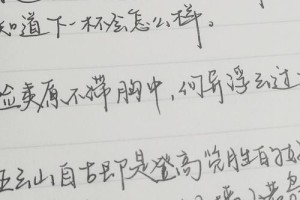 知道下一杯会怎么样。
险夷原不滞胸中，何异浮云过
五云山自古即是登高览胜的